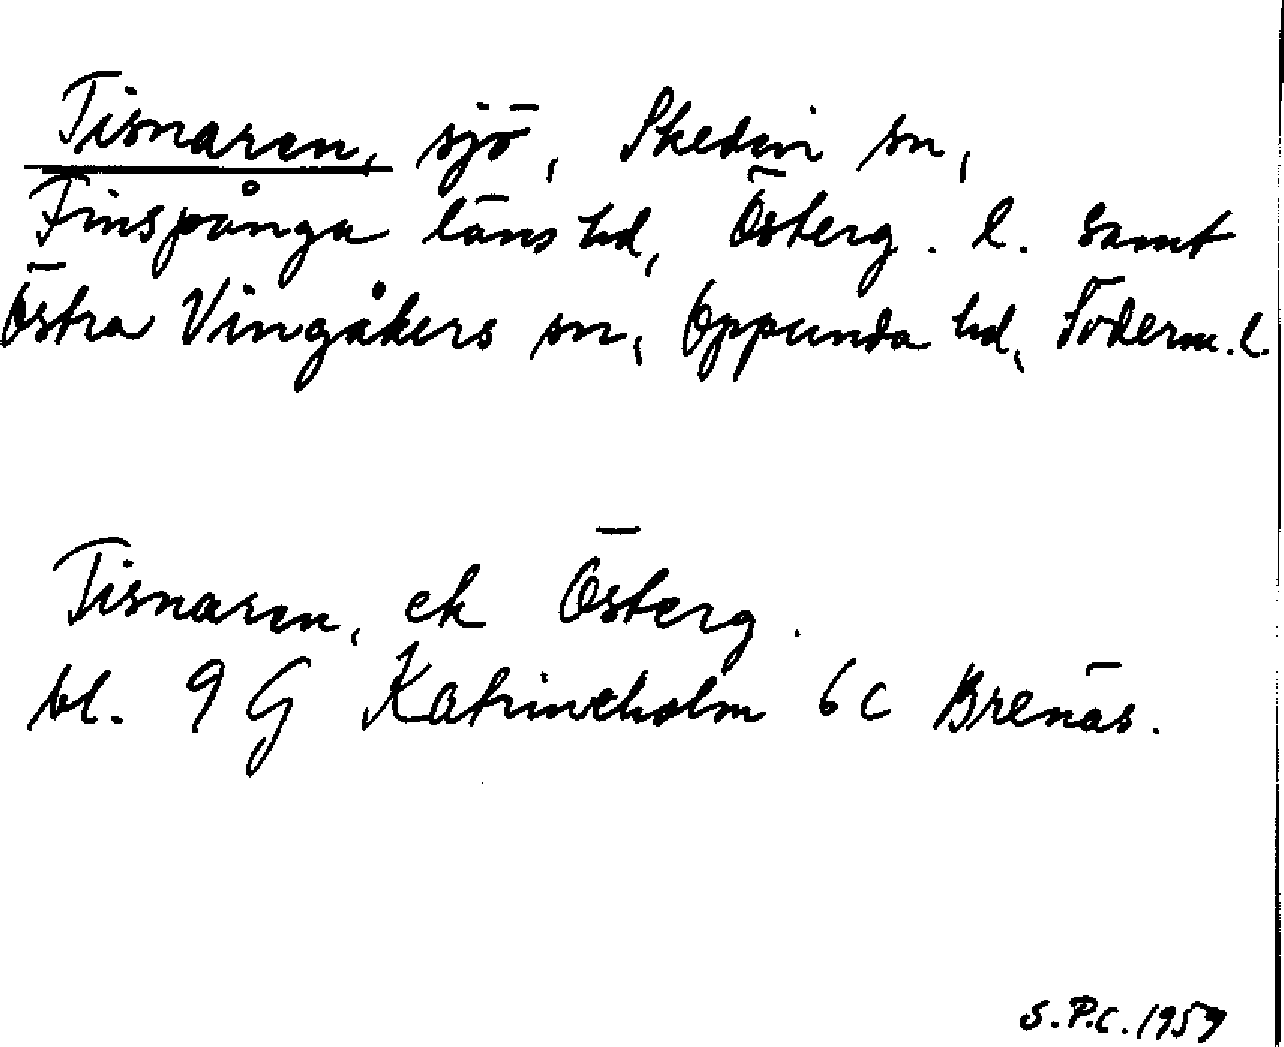 Tisnaren, sjö, Skedevi sn,
Finspånga läns hd, Österg. l. samt
Östra Vingåkers sn, Oppunda hd, Söderm. l.
Tisnaren, ek Österg.
bl. 9 G Katrineholm 6 c Brenäs.
S.P.C. 1959